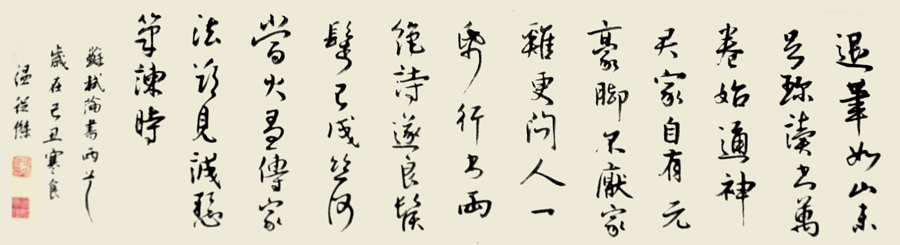 退筆如山未
足珍讀書萬
卷始通神
君家自有元
豪脚不厭家
雞更問人一
紙行書兩
絕詩遂良鬚
鬢已成絲何
當火急傳家
法欲見誠懸
筆諫時
蘇軾論書兩首
歲在己丑寒食
温 傑